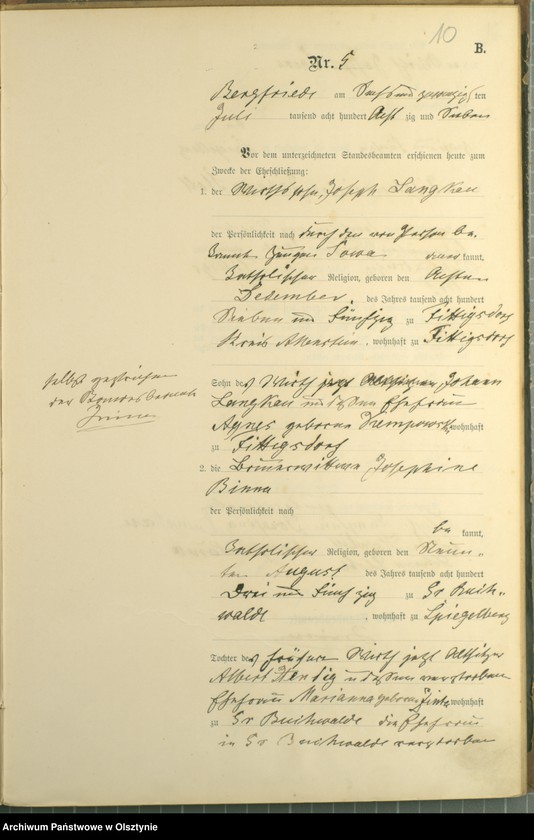 10
B.
Nr. 5
Bergfriede am Sechs und zwanzig ten
Juli tausend acht hundert Acht zig und Sieben
Vor dem unterzeichneten Standesbeamten erschienen heute zum
Zwecke der Eheschließung:
1. der Wirthssohn, Joseph Langkau
der Persönlichkeit nach durch den von Person be
kannten Zeugen Sowa kannt,
Katholischer Religion, geboren den Achten
Dezember, des Jahres tausend acht hundert
Sieben und Fünfzig zu Fittigsdorf
Kreis Allenstein, wohnhaft zu Fittigsdorf
selbst gestrichen
der Standesbeamte
Sohn des Wirth jetzt Johann
Langkau und dessen Ehefrau
Agnes geborne wohnhaft
zu Fittigsdorf
2. die Josephine
Binna
der Persönlichkeit nach
be kannt,
Katholischer Religion, geboren den Neun-
ten August des Jahres tausend acht hundert
Drei und Fünf zig zu Gr Buch-
walde, wohnhaft zu Spiegelberg
Tochter des früheren Wirth jetzt Altsitzer
Albert Hendig und dessen verstorbenen
Ehefrau Marianna geborne wohnhaft
zu Gr Buchwalde die Ehefrau
in Gr Buchwalde verstorben
Archiwum Państwowe w Olsztynie